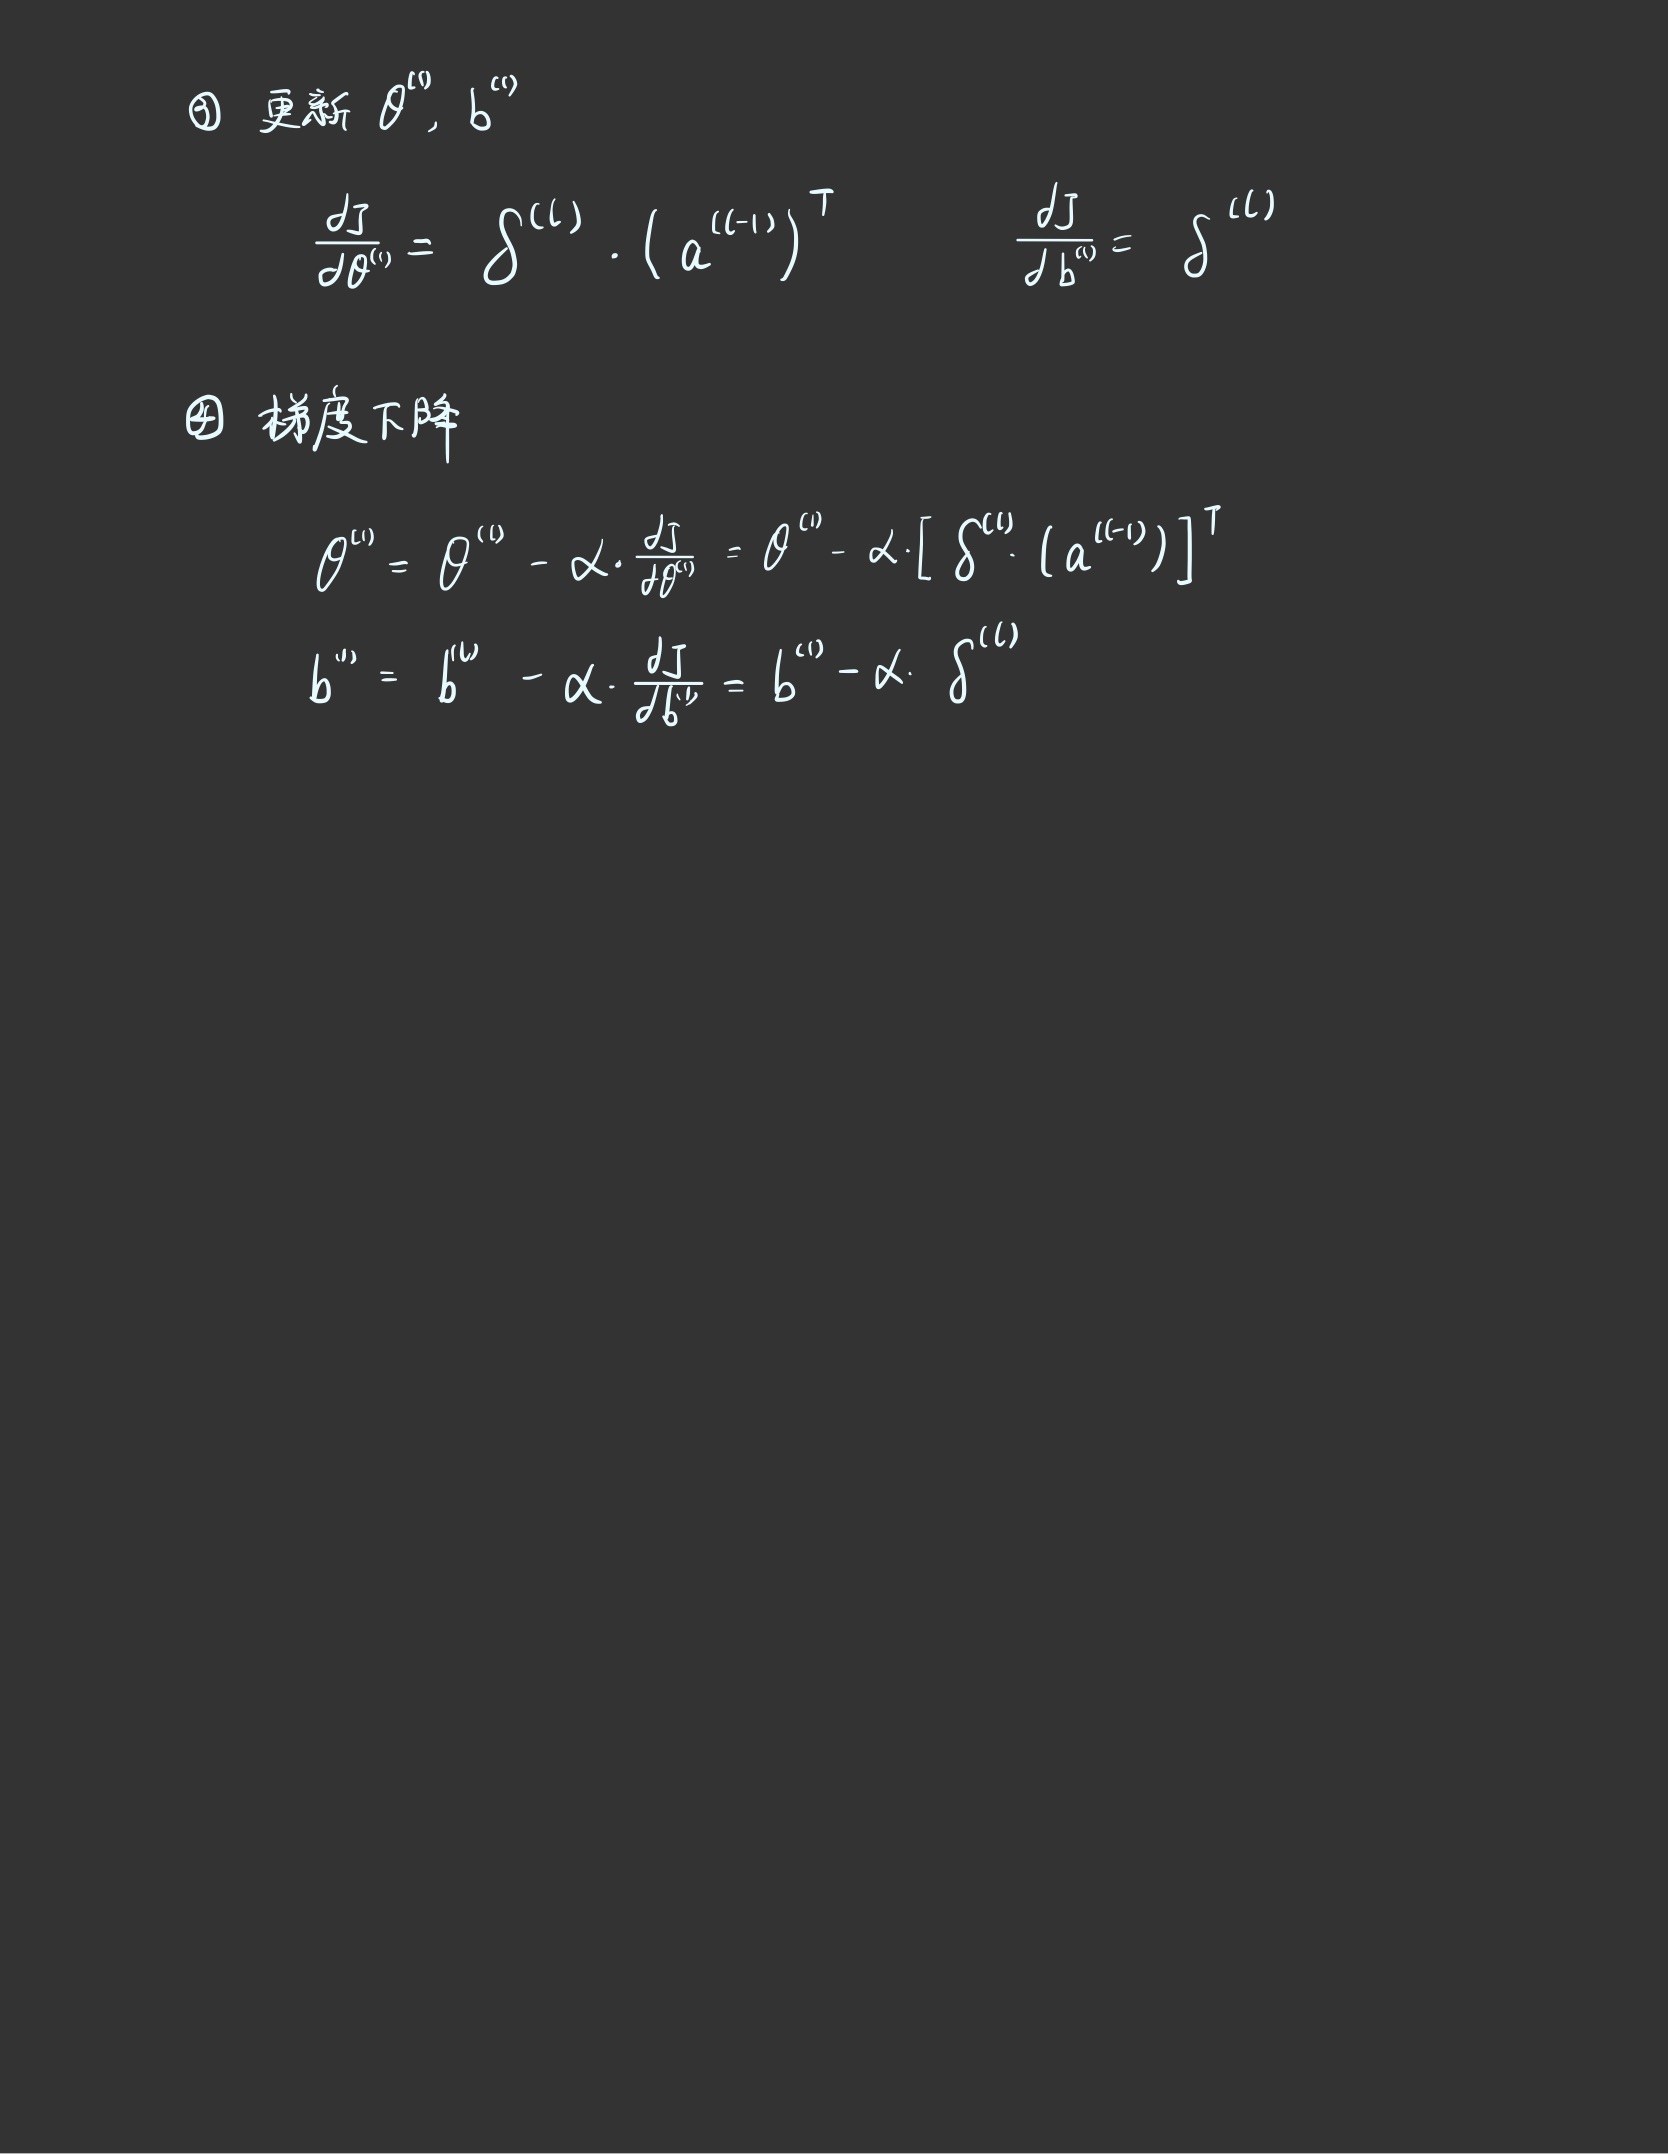 ③ 更新 θ^(l), b^(l)
dJ/dθ^(l) = δ^(l) · (a^(l-1))^T    dJ/db^(l) = δ^(l)
④ 梯度下降
θ^(l) = θ^(l) - α · dJ/dθ^(l) = θ^(l) - α · [δ^(l) · (a^(l-1))]^T
b^(l) = b^(l) - α · dJ/db^(l) = b^(l) - α · δ^(l)